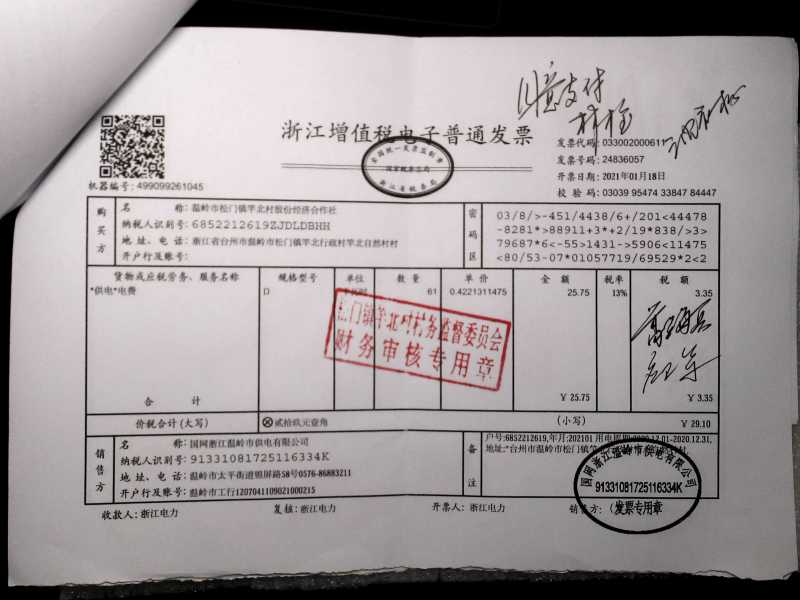 同意支付
浙江增值税电子普通发票
全国统一发票监制章
国家税务总局
浙江省税务局
机器编号: 499099261045
发票代码: 033002000611
发票号码: 24836057
开票日期: 2021年01月18日
校 验 码: 03039 95474 33847 84447
购买方
名 称: 温岭市松门镇竿北村股份经济合作社
纳税人识别号: 6852212619ZJDLDBHH
地 址、电 话: 浙江省台州市温岭市松门镇竿北行政村竿北自然村村
开户行及账号:
密码区
03/8/>-451/4438/6+/201<44478
-8281*>88911+3*+2/19*838/>3>
79687*6<-55>1431->5906<11475
<80/53-07*01057719/69529*2<2
货物或应税劳务、服务名称 规格型号 单位 数 量 单 价 金 额 税率 税 额
*供电*电费 D 61 0.4221311475 25.75 13% 3.35
松门镇竿北村村务监督委员会
财务审核专用章
合 计 ¥ 25.75 ¥ 3.35
价税合计(大写) ⊗贰拾玖元壹角 (小写) ¥ 29.10
销售方
名 称: 国网浙江温岭市供电有限公司
纳税人识别号: 91331081725116334K
地 址、电 话: 温岭市太平街道锦屏路58号0576-86883211
开户行及账号: 温岭市工行1207041109021000215
备注
户号:6852212619,年月:202101 用电周期:2020.12.01-2020.12.31,
地址:*台州市温岭市松门镇
国网浙江温岭市供电有限公司
91331081725116334K
(发票专用章
收款人: 浙江电力 复核: 浙江电力 开票人: 浙江电力 销售方: